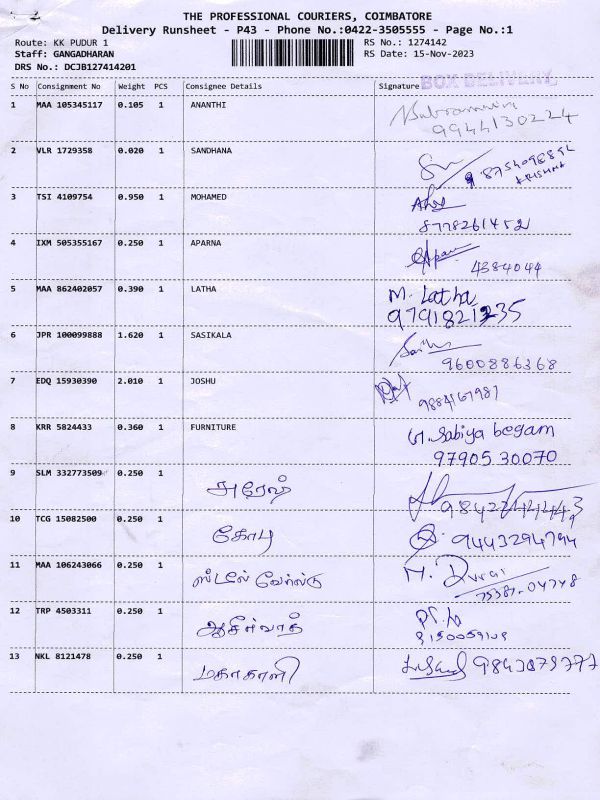 THE PROFESSIONAL COURIERS, COIMBATORE
Delivery Runsheet - P43 - Phone No.:0422-3505555 - Page No.:1
Route: KK PUDUR 1 RS No.: 1274142
Staff: GANGADHARAN RS Date: 15-Nov-2023
DRS No.: DCJB127414201
BOX DELIVERY
S No Consignment No Weight PCS Consignee Details Signature
1 MAA 105345117 0.105 1 ANANTHI
9944130224
2 VLR 1729358 0.020 1 SANDHANA
8754098894
KRISHNA
3 TSI 4109754 0.950 1 MOHAMED
8778261452
4 IXM 505355167 0.250 1 APARNA
4384044
5 MAA 862402057 0.390 1 LATHA M. Latha
9791821235
6 JPR 100099888 1.620 1 SASIKALA
9600886368
7 EDQ 15930390 2.010 1 JOSHU
9884167981
8 KRR 5824433 0.360 1 FURNITURE Sabiya begam
97905 30070
9 SLM 332773509 0.250 1 அரேஷ்
10 TCG 15082500 0.250 1 கோபி 9443294794
11 MAA 106243066 0.250 1 ஸ்டீல் வேர்ல்டு M. Durai
75381-04748
12 TRP 4503311 0.250 1 ஆசீர்வாத்
13 NKL 8121478 0.250 1 மகாகாளி